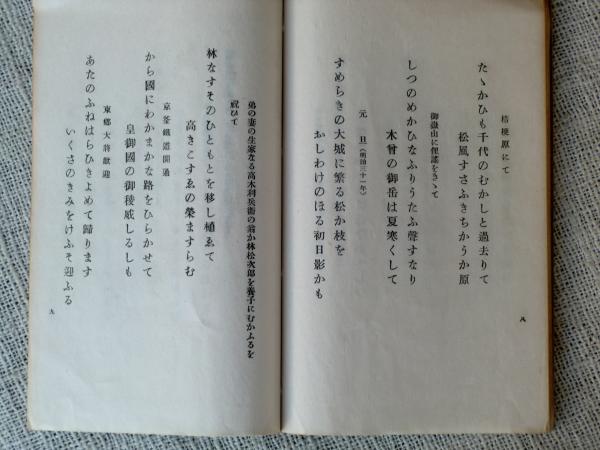 桔梗原にて
たゝかひも千代のむかしと過去りて
松風すさふきちかうか原
御嶽山に俚謡をきゝて
しつのめかひなふりうたふ聲すなり
木曾の御岳は夏寒くして
元旦(明治三十一年)
すめらきの大城に繁る松か枝を
おしわけのほる初日影かも
八
弟の妻の生家なる高木利兵衛の翁か林松次郎を養子にむかふるを
祝ひて
林なすそのひともとを移し植ゑて
高きこすゑの榮ますらむ
京釜鐵道開通
から國にわかまかな路をひらかせて
皇御國の御稜威しるしも
東郷大將歡迎
あたのふねはらひきよめて歸ります
いくさのきみをけふそ迎ふる
九